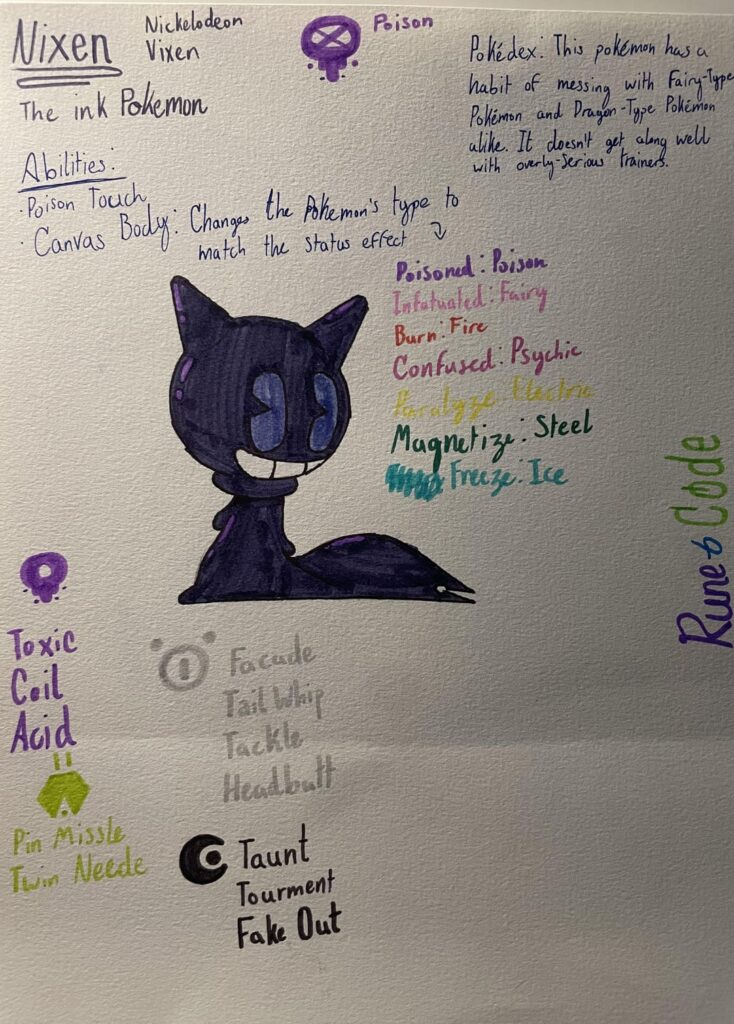 Nixen
Nickelodeon
Vixen
Poison
The ink Pokemon
Pokédex: This pokémon has a
habit of messing with Fairy-Type
Pokémon and Dragon-Type Pokémon
alike. It doesn't get along well
with overly-serious trainers.
Abilities:
· Poison Touch
· Canvas Body: Changes the Pokemon's type to
match the status effect ↓
Poisoned: Poison
Infatuated: Fairy
Burn: Fire
Confused: Psychic
Paralyze: Electric
Magnetize: Steel
Freeze: Ice
Toxic
Coil
Acid
Pin Missle
Twin Neede
Facade
Tail Whip
Tackle
Headbutt
Taunt
Tourment
Fake Out
Code